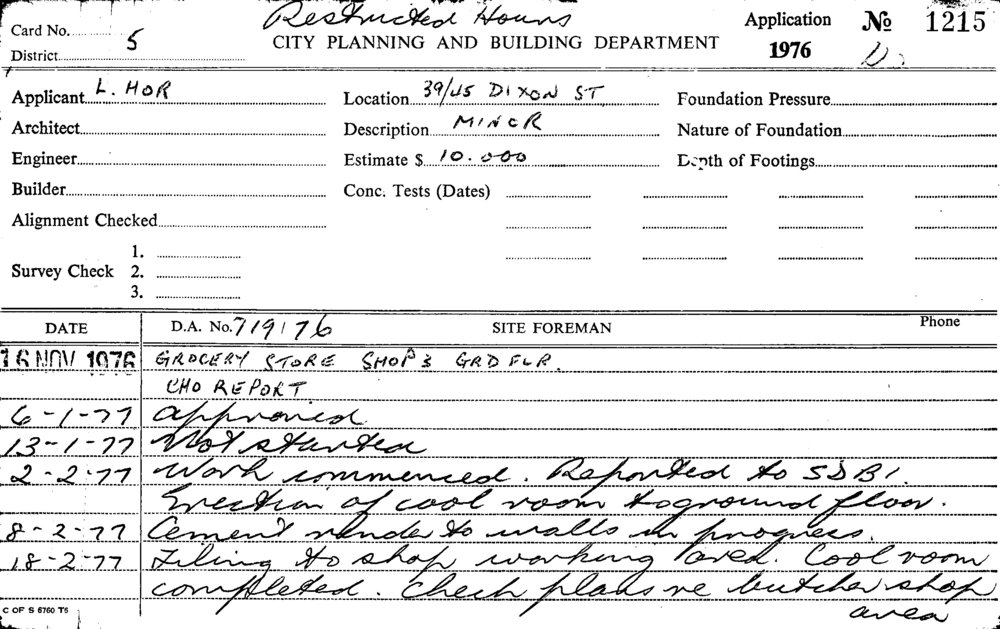 Restricted Hours
Card No. 5
District
CITY PLANNING AND BUILDING DEPARTMENT
Application No 1215
1976
Applicant L. HOR
Location 39/45 DIXON ST
Foundation Pressure
Architect
Description MINOR
Nature of Foundation
Engineer
Estimate $ 10.000
Depth of Footings
Builder
Conc. Tests (Dates)
Alignment Checked
Survey Check
1.
2.
3.
DATE
D.A. No. 719176
SITE FOREMAN
Phone
16 NOV 1976 GROCERY STORE SHOP 3 GRD FLR.
CHO REPORT
6-1-77 approved
13-1-77 Not started
2-2-77 Work commenced. Reported to SDBI.
Erection of cool room to ground floor.
8-2-77 Cement render to walls in progress.
18-2-77 Tiling to shop working area. Cool room
completed. Check plans re butcher shop
area
C OF S 6760 T5